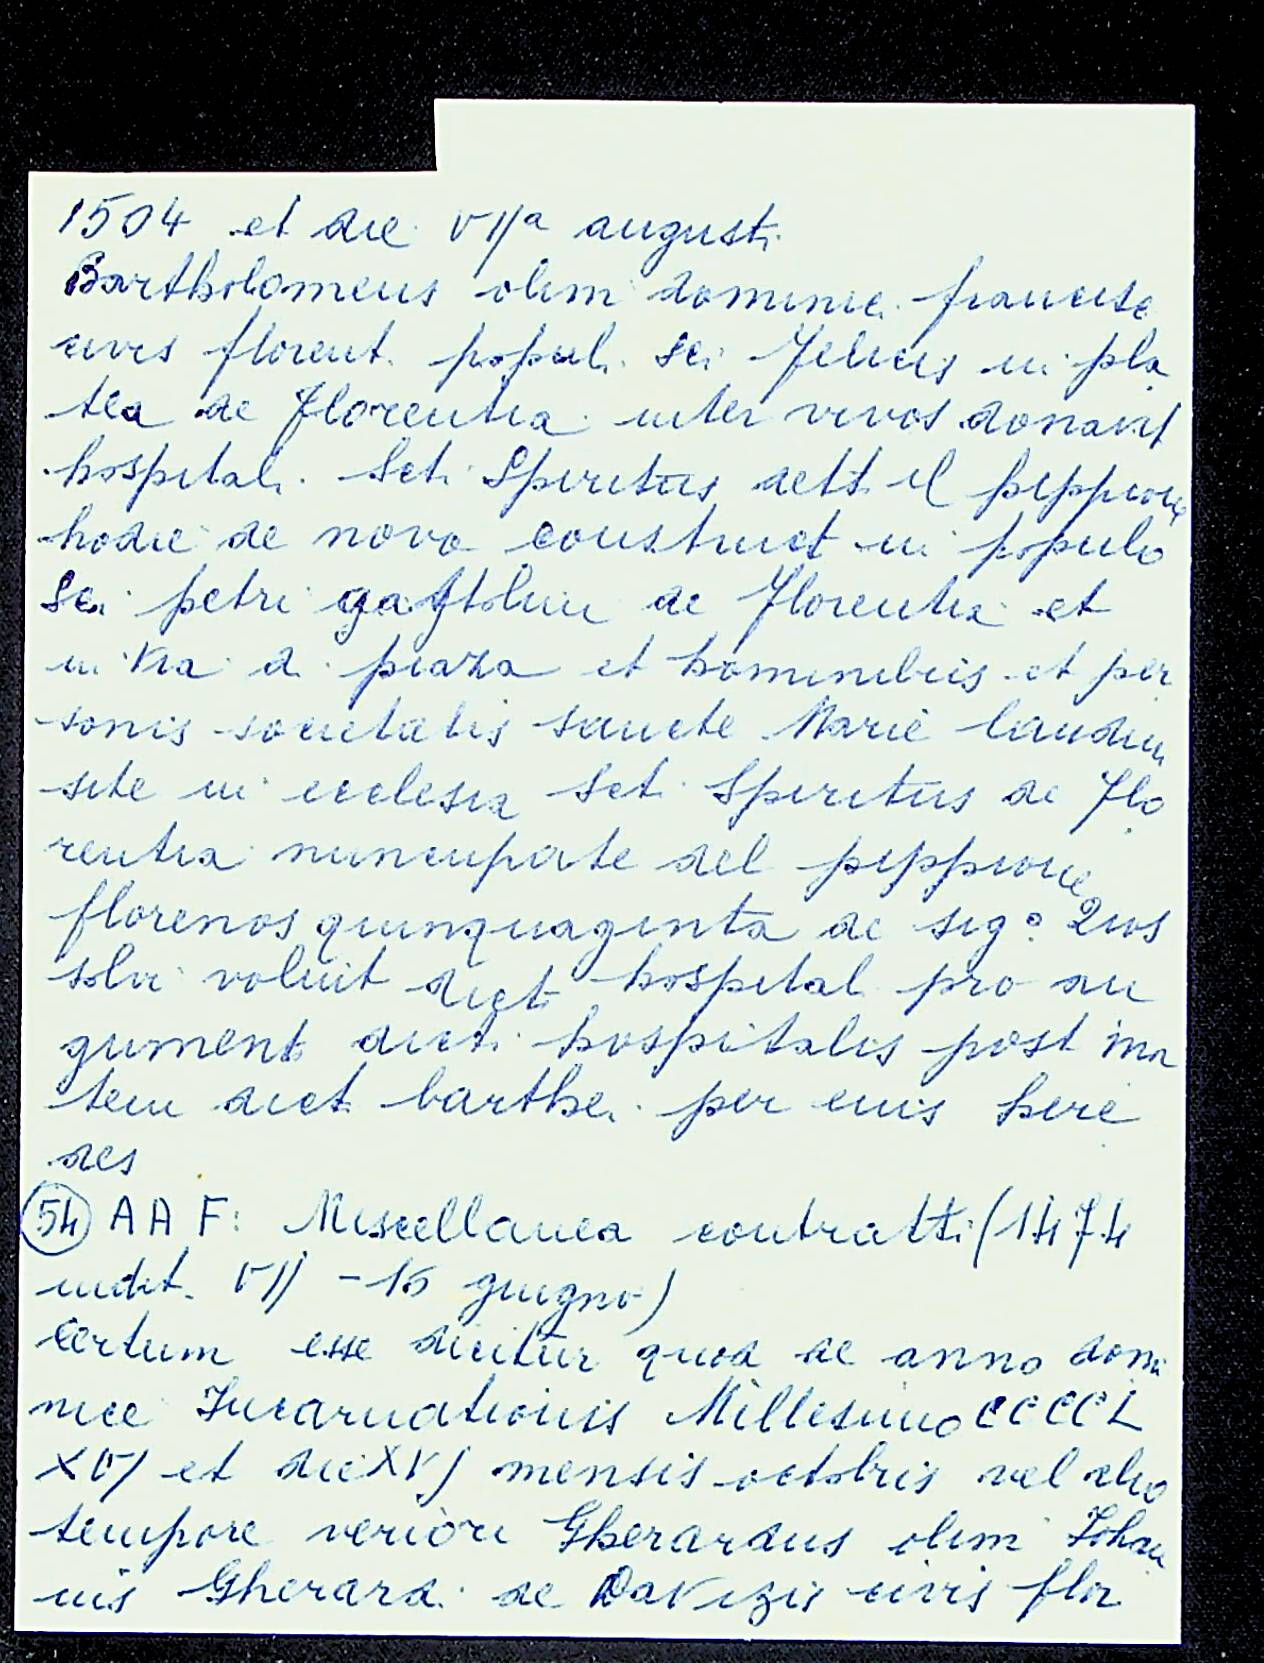 1504 et die VIIa augusti
Bartholomeus olim dominici francisci
civis florent. popul. Sci Felicis in pla
tea de Florentia inter vivos donavit
hospitali Scti Spiritus dett. il pippione
hodie de novo construct in populo
Sci petri gattolini de Florentia et
in via di piaza et hominibus et per
sonis societatis sancte Marie laudum
site in ecclesia Scti Spiritus de Flo
rentia nuncupate del pippione
florenos quinquaginta de sug° Quos
solvi voluit dict hospital pro au
gument dicti hospitalis post mor
tem dict barthi per eius here
des
(54) AAF: Miscellanea contratti (1474
indit. VIJ - 16 giugno)
Certum esse dicitur quod de anno domi
nice Incarnationis Millesimo CCCCL
XVJ et die XVJ mensis octobris vel alio
tempore veriori Gherardus olim Johan
nis Gherardi de Davizis civis flor